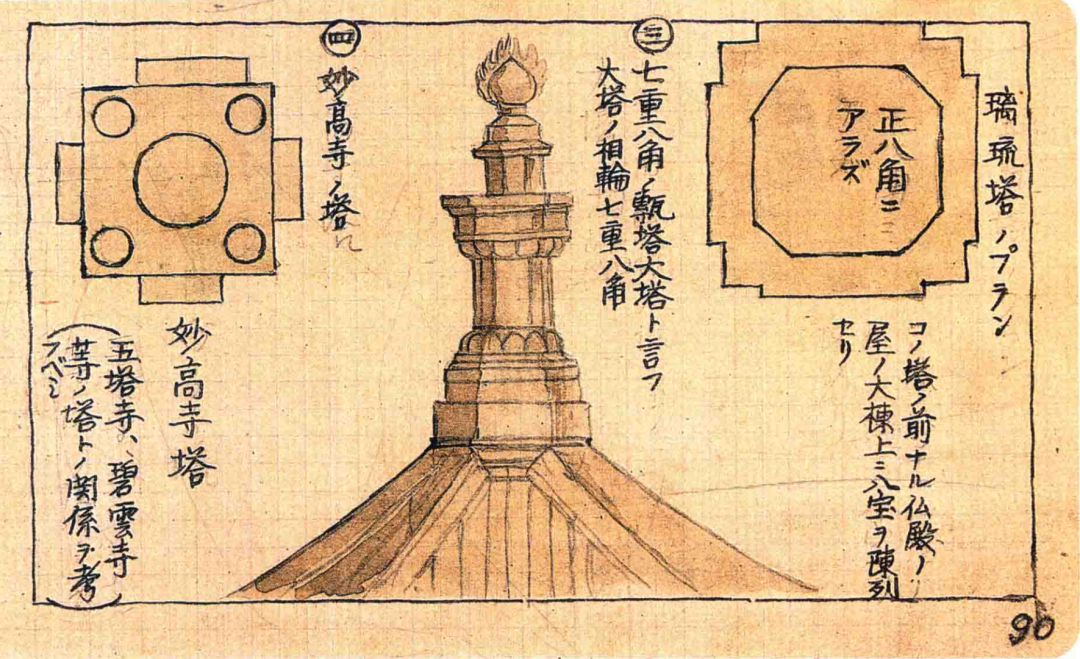 璃琉塔ノプラン
正八角ニ
アラズ
コノ塔ノ前ナル仏殿ノ
屋ノ大棟上ニ八宝ヲ陳列
セリ
㊂
七重八角ノ甎塔大塔ト言フ
大塔ノ相輪七重八角
㊃
妙高寺ノ塔
妙高寺塔
五塔寺、碧雲寺
等ノ塔トノ関係ヲ考
フベシ
90